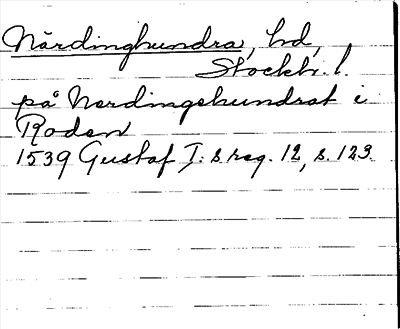 Närdinghundra, hd,
Stockh. l.
på Nerdingehundrat i
Roden
1539 Gustaf I:s reg. 12, s. 123.